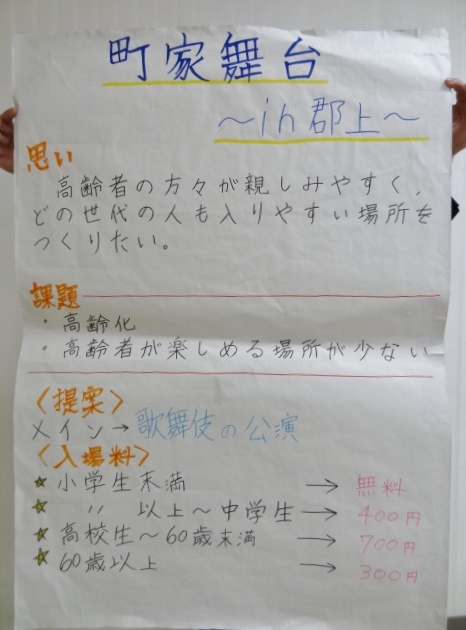 町家舞台
～in郡上～
思い
高齢者の方々が親しみやすく、
どの世代の人も入りやすい場所を
つくりたい。
課題
・高齢化
・高齢者が楽しめる場所が少ない
〈提案〉
メイン→歌舞伎の公演
〈入場料〉
☆小学生未満 → 無料
☆ 〃 以上～中学生 → 400円
☆高校生～60歳未満 → 700円
☆60歳以上 → 300円